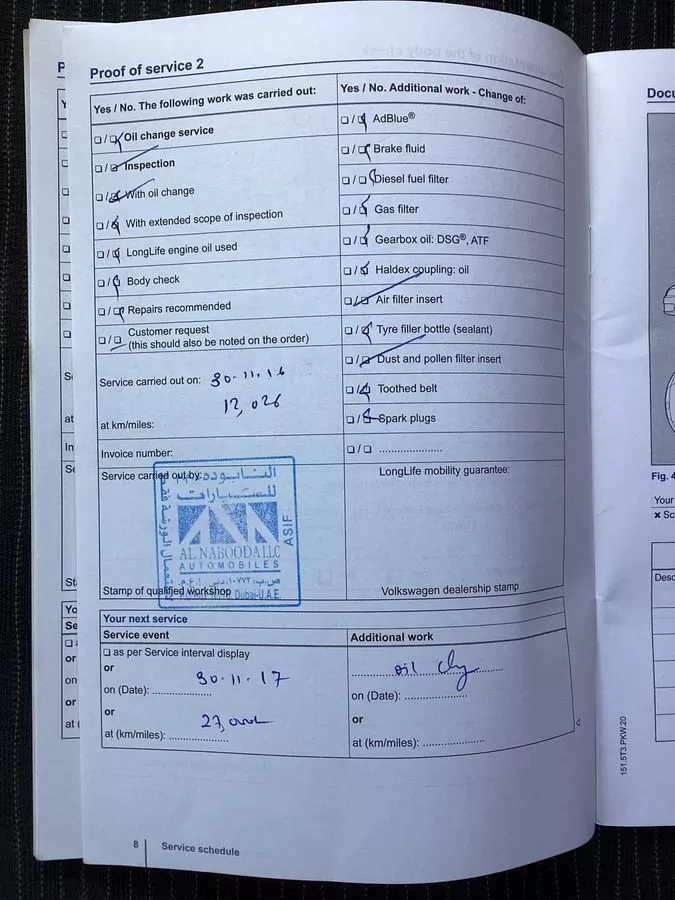 Proof of service 2
Yes / No. The following work was carried out:
Oil change service
Inspection
With oil change
With extended scope of inspection
LongLife engine oil used
Body check
Repairs recommended
Customer request
(this should also be noted on the order)
Service carried out on: 30.11.16
12,026
at km/miles:
Invoice number:
Service carried out by:
النابوده
للسيارات
AL NABOODA LLC
AUTOMOBILES
ASIF
Dubai-U.A.E.
Stamp of qualified workshop
Yes / No. Additional work - Change of:
AdBlue®
Brake fluid
Diesel fuel filter
Gas filter
Gearbox oil: DSG®, ATF
Haldex coupling: oil
Air filter insert
Tyre filler bottle (sealant)
Dust and pollen filter insert
Toothed belt
Spark plugs
LongLife mobility guarantee:
Volkswagen dealership stamp
Your next service
Service event
as per Service interval display
or
30.11.17
on (Date):
or
at (km/miles):
Additional work
oil
on (Date):
or
at (km/miles):
8 Service schedule
151.5T3.PKW.20
Docu
Fig. 4
Your
Desc